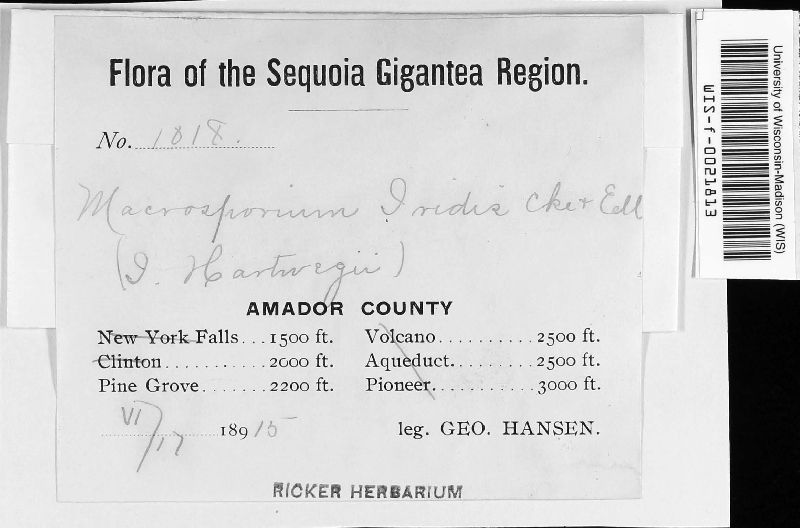 Flora of the Sequoia Gigantea Region.
No. 1818.
Macrosporium Iridis Cke + Ell
(I. Hartwegii)
AMADOR COUNTY
New York Falls...1500 ft. Volcano..........2500 ft.
Clinton...........2000 ft. Aqueduct..........2500 ft.
Pine Grove.......2200 ft. Pioneer..........3000 ft.
VI/17 1895 leg. GEO. HANSEN.
RICKER HERBARIUM
University of Wisconsin-Madison (WIS)
WIS-f-0021813